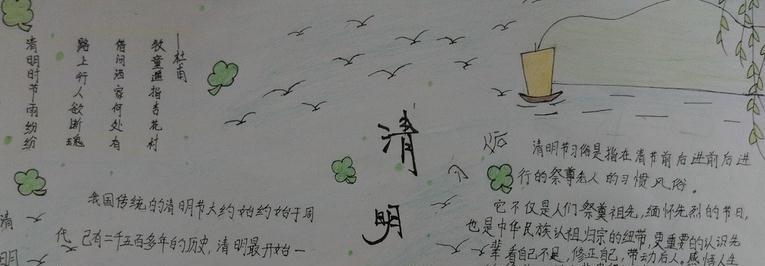 清明时节雨纷纷
路上行人欲断魂
借问酒家何处有
牧童遥指杏花村
—杜甫
清
明
我国传统的清明节大约始约始于周
代 已有二千五百多年的历史，清明最开始一
清
明
清明节习俗是指在清节前后进前后进
行的祭尊先人的习惯风俗。
它不仅是人们祭奠祖先，缅怀先烈的节日，
也是中华民族认祖归宗的纽带，更重要的认识先
辈 看自己不足，修正自己，带动后人。感悟人生